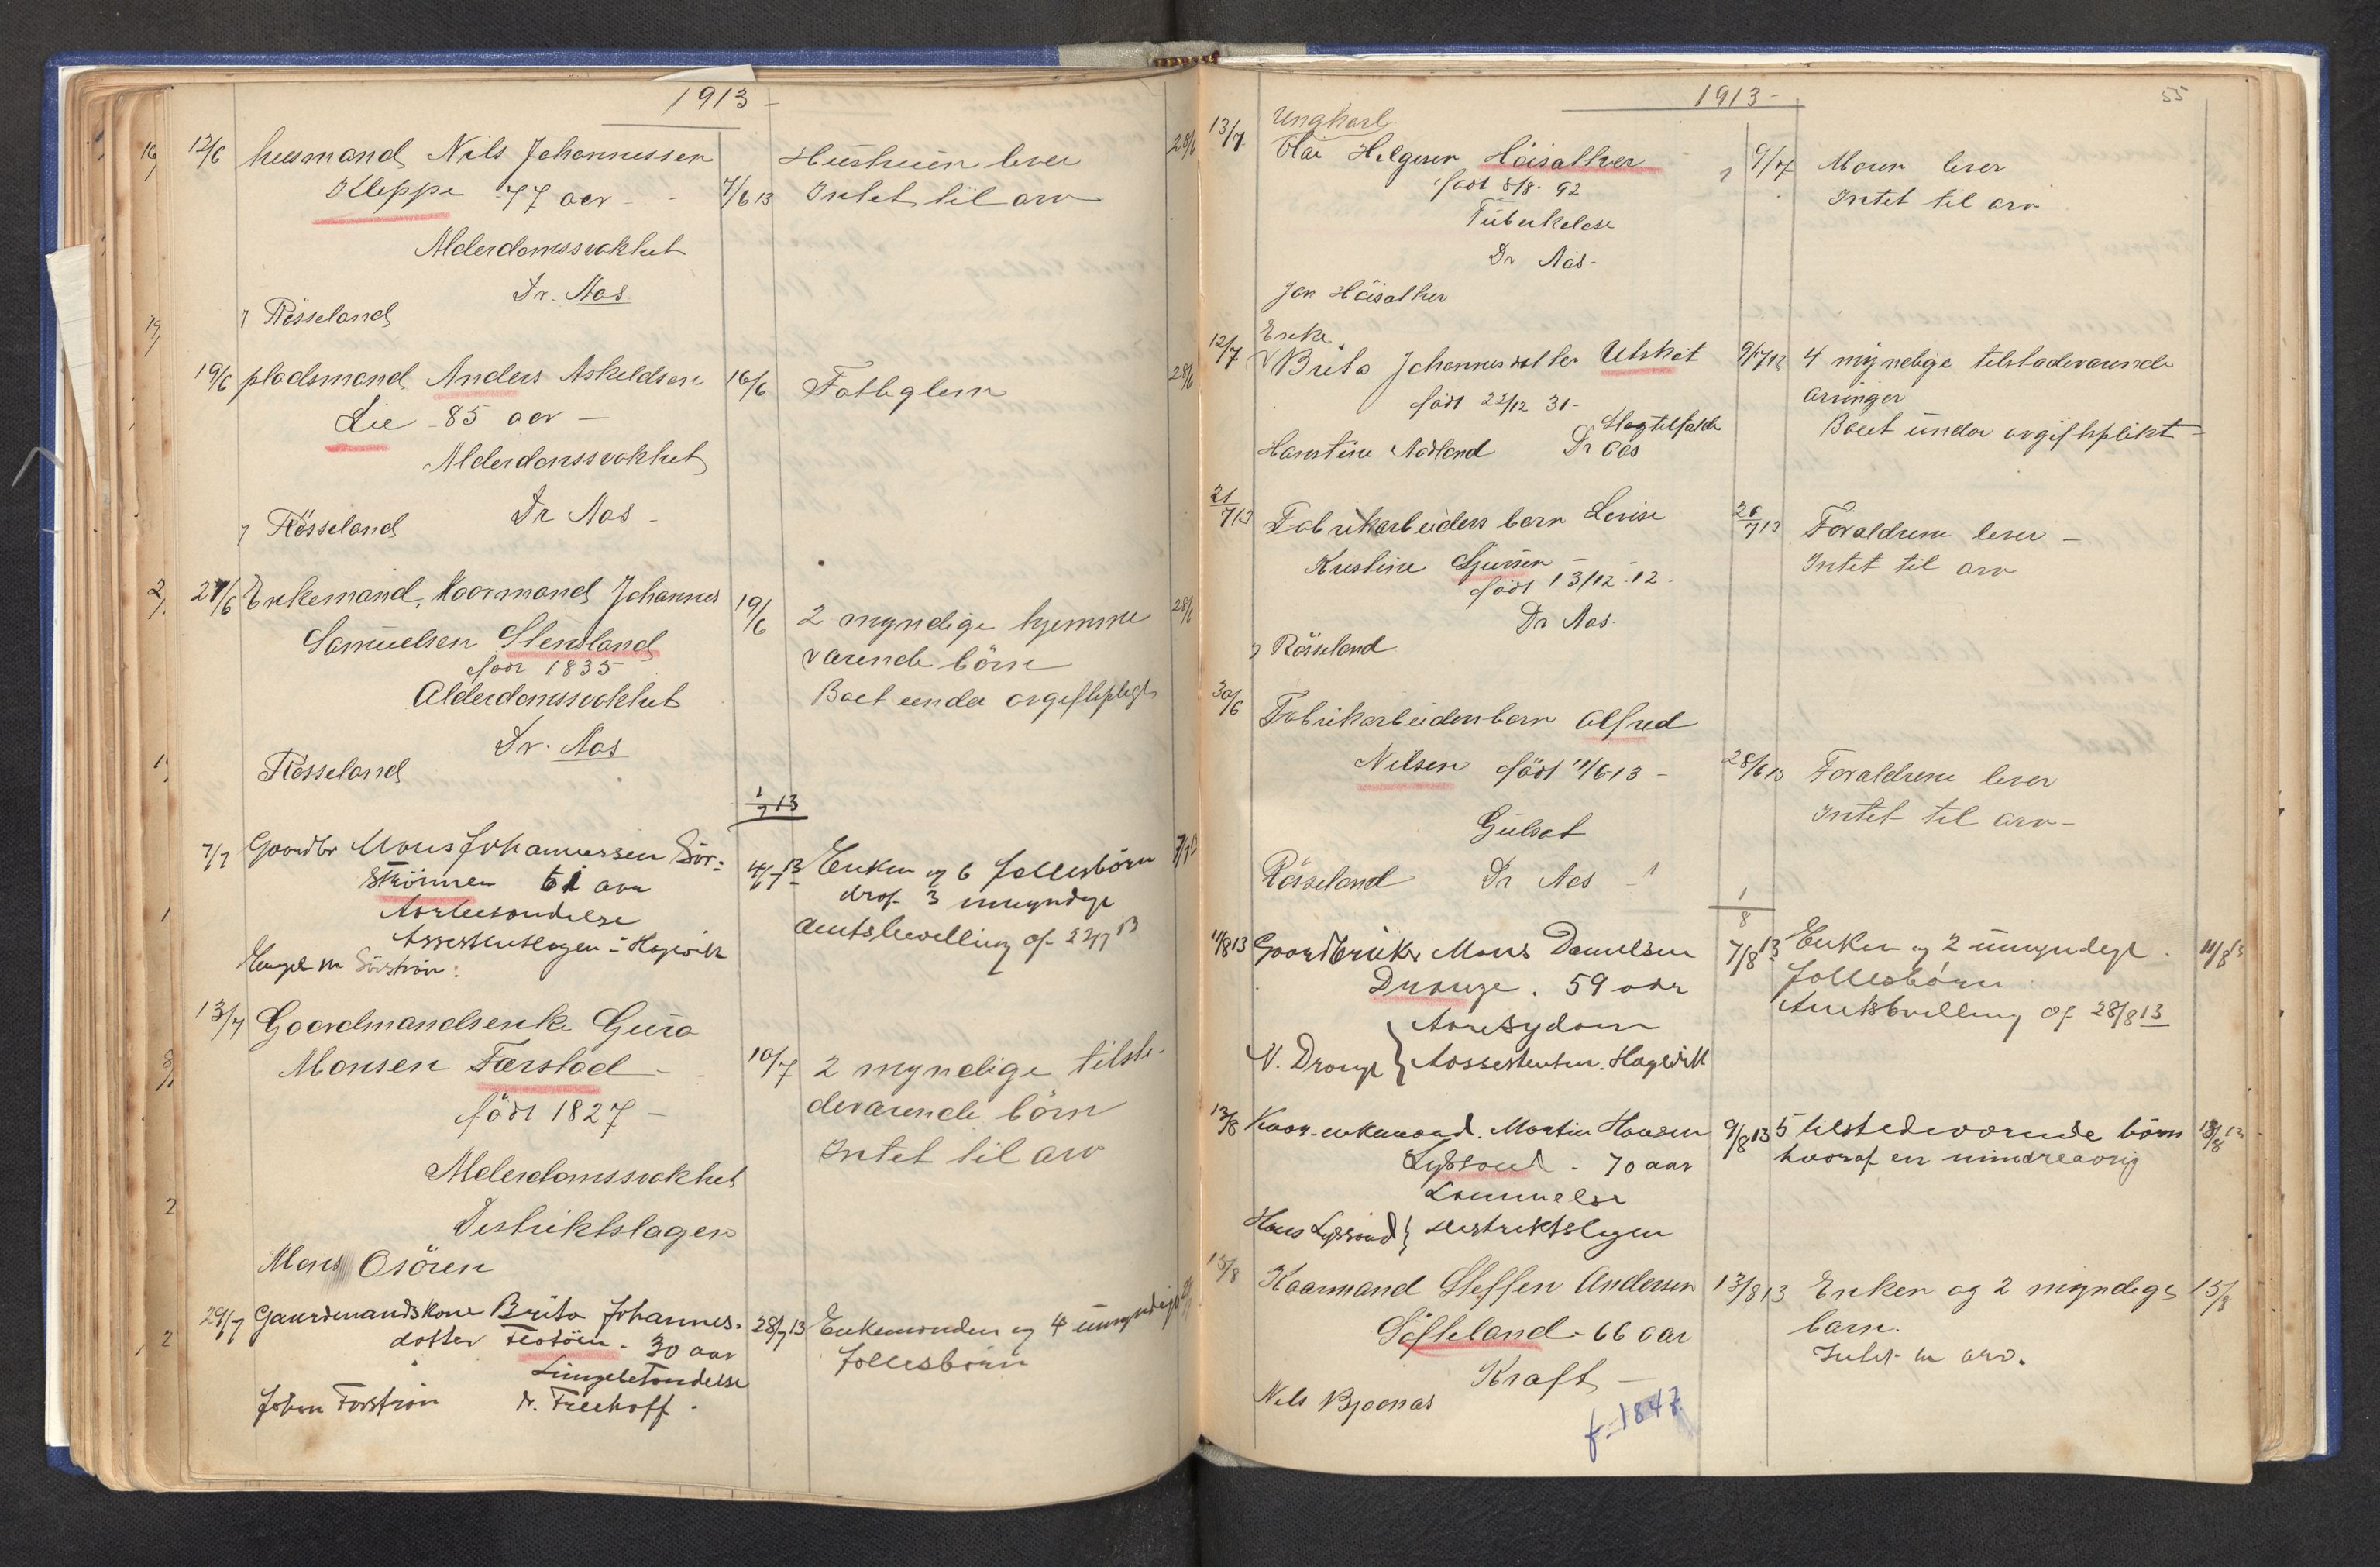 1913 -
12/6 husmand Nils Johannessen
Kleppe 77 aar - 7/6 13
Hustruen lever
Intet til arv
28/6
Alderdomssvakhet
Dr. Aas
Røsseland
19/6 pladsmand Anders Askeldsen 16/6 Fattiglem 28/6
Lie - 85 aar -
Alderdomssvakhet
Dr Aas -
Røsseland
21/6 Enkemand, Kaarmand Johannes 19/6 2 myndige hjemme 28/6
Samuelsen Stensland værende børn
født 1835
Alderdomssvakhet Boet under avgiftsplegt
Dr. Aas
Røsseland
1/7 13
7/7 Gaardbr Mons Johannessen Sør- 4/7 13 Enken og 6 fællesbørn 7/7 13
strømmen 61 aar draf 3 umyndige
Aarebetændelse Amtsbevilling af 22/7 13
Assistentlægen - Hagevik
Sørstrøn:
13/7 Gaardmandsenke Guro
Monsen Færstad - 10/7 2 myndige tilste-
født 1827 - deværende børn
Intet til arv
Alderdomssvakhet
Distriktslægen
Mons Osøren
29/7 Gaardmandskone Brita Johannes- 28/7 13 Enkemanden og 4 umyndige
dotter 30 aar fællesbørn
Lungebetændelse
Johan Forstrøn dr.
1913 - 55
Ungkarl
13/7 Olai Helgesen Høisæther 9/7 Moren lever
født 8/8 92 Intet til arv
Tuberkelose
Dr Aas -
Jon Høisæther
Enke
12/7 Brita Johannesdotter Utskot 9/7 13 4 myndige tilstedeværende
født 22/12 31 - arvinger
Slagtilfælde Boet under avgiftsplikt -
Hanstine Nadland Dr Aas
21/7 13 Fabrikarbeiders barn Lovise 20/7 13 Forældrene lever -
Kristine Sjursen - Intet til arv
født 13/12 - 12 -
Dr Aas -
Røsseland
30/6 Fabrikarbeidersbarn Alfred
Nilsen født 11/6 13 - 28/6 13 Forældrene lever
Gulsot Intet til arv -
Røsseland Dr Aas -
1/8
11/8 13 Gaardbruker Mons Danielsen 7/8 13 Enken og 2 umyndige 11/8 13
Drange. 59 aar fællesbørn
Aaresydom Amtsbevilling af 28/8 13
N. Drange Assistenten. Hagevik
13/8 Kaar-enkemand. Martin Hansen 9/8 13 5 tilstedeværende børn 13/8 13
Lyssand - 70 aar hvoraf en mindreaarig
Lammelse
Hans Lyssand } Distriktslægen
15/8 Kaarmand Steffen Andersen 13/8 13 Enken og 2 myndige 15/8
Søfteland - 66 aar barn.
Intet til arv.
Kraft -
Nils Bjønnes
f. 1847